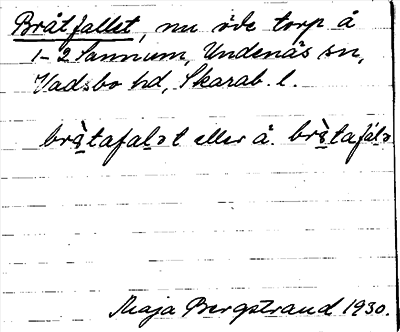 Bråtfallet, nu öde torp å
1-2 Sannum, Undenäs sn,
Vadsbo hd, Skarab. l.
brₐ̀tafalət eller å. brₐ̀tafálə
Maja Bergstrand 1930.